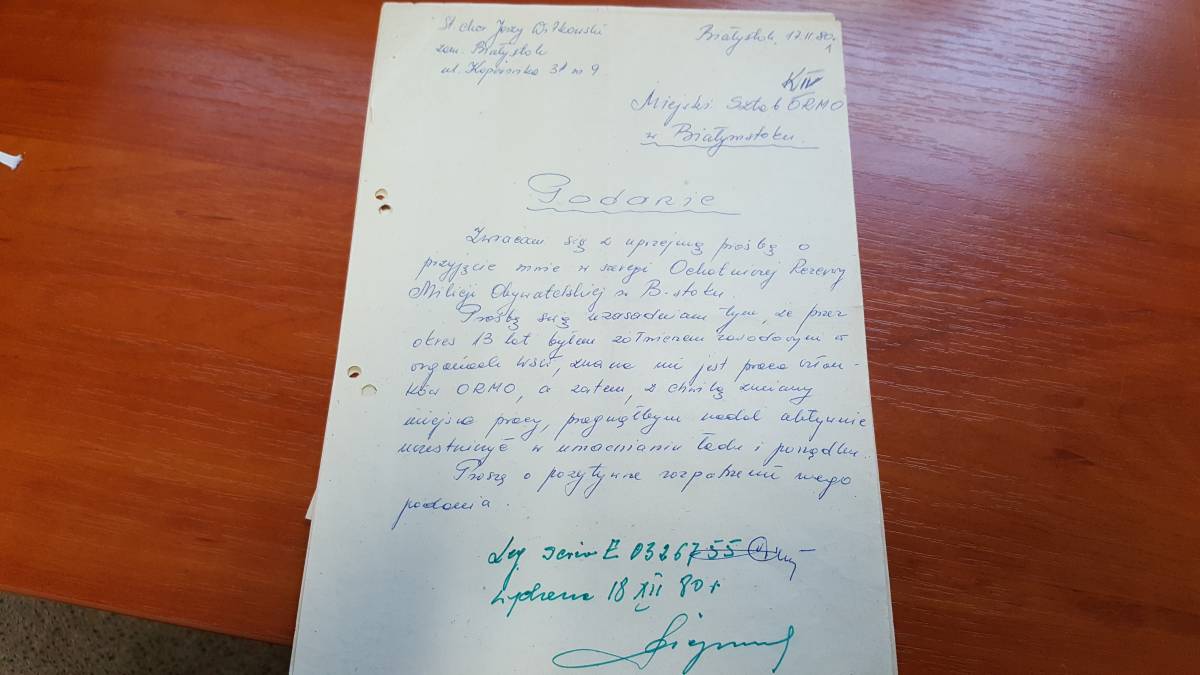 St chor Jerzy Witkowski
zam. Białystok
ul. Kopernika 31 m 9
Białystok, 17.II.80r.
1
K IV
Miejski Sztab ORMO
w Białymstoku.
Podanie
Zwracam się z uprzejmą prośbą o
przyjęcie mnie w szeregi Ochotniczej Rezerwy
Milicji Obywatelskiej w B-stoku.
Prośbę swą uzasadniam tym, że przez
okres 13 lat byłem żołnierzem zawodowym w
organach WSW, znana mi jest praca człon-
ków ORMO, a zatem, z chwilą zmiany
miejsca pracy, pragnąłbym nadal aktywnie
uczestniczyć w umacnianiu ładu i porządku.
Proszę o pozytywne rozpatrzenie mego
podania.
Leg seria E 0326755
wydana 18 XII 80r